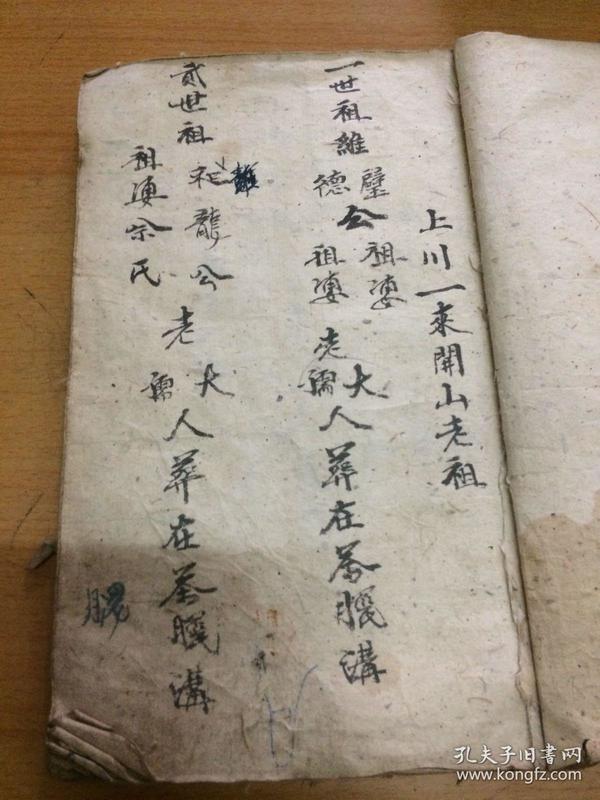 上川一來開山老祖
一世祖維璧德公祖婆祖婆老大孺人葬在茶腿溝
貳世祖龍公老大孺人葬在茶腿溝
祖婆余氏
孔夫子旧书网
www.kongfz.com